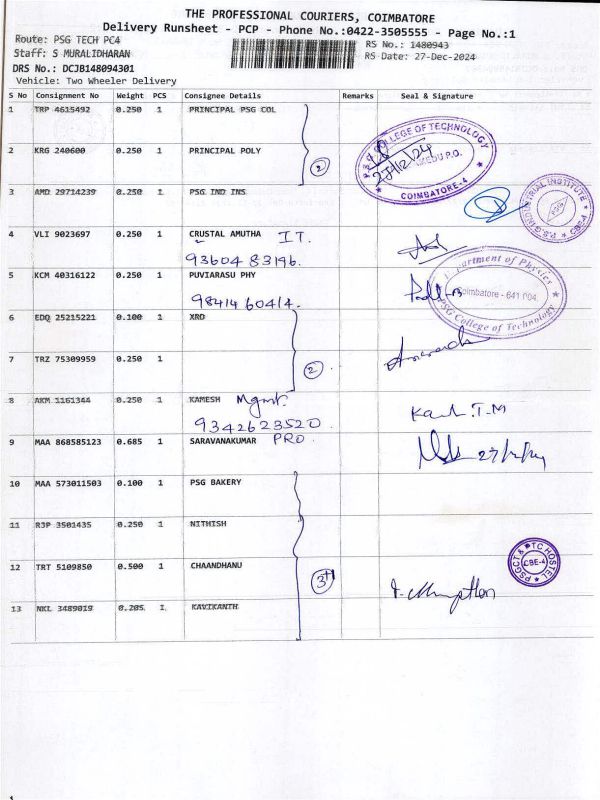 THE PROFESSIONAL COURIERS, COIMBATORE
Delivery Runsheet - PCP - Phone No.:0422-3505555 - Page No.:1
Route: PSG TECH PC4 RS No.: 1480943
Staff: S MURALIDHARAN RS Date: 27-Dec-2024
DRS No.: DCJB148094301
Vehicle: Two Wheeler Delivery
S No Consignment No Weight PCS Consignee Details Remarks Seal & Signature
1 TRP 4615492 0.250 1 PRINCIPAL PSG COL
2 KRG 240600 0.250 1 PRINCIPAL POLY 2
COLLEGE OF TECHNOLOGY
27/12/24
COIMBATORE-4
3 AMD 29714239 0.250 1 PSG IND INS
4 VLI 9023697 0.250 1 CRUSTAL AMUTHA I T.
93604 83196.
5 KCM 40316122 0.250 1 PUVIARASU PHY
98414 60414.
Department of Physics
Coimbatore - 641 004.
PSG College of Technology
6 EDQ 25215221 0.100 1 XRD
7 TRZ 75309959 0.250 1 2
8 AKM 1161344 0.250 1 KAMESH Mgmt.
9342623520
9 MAA 868585123 0.685 1 SARAVANAKUMAR PRO.
27/12/24
10 MAA 573011503 0.100 1 PSG BAKERY
11 RJP 3501435 0.250 1 NITHISH
12 TRT 5109850 0.500 1 CHAANDHANU
PSGCT & PTC HOSTEL
CBE-4
13 NKL 3489019 0.205 1 KAVIKANTH